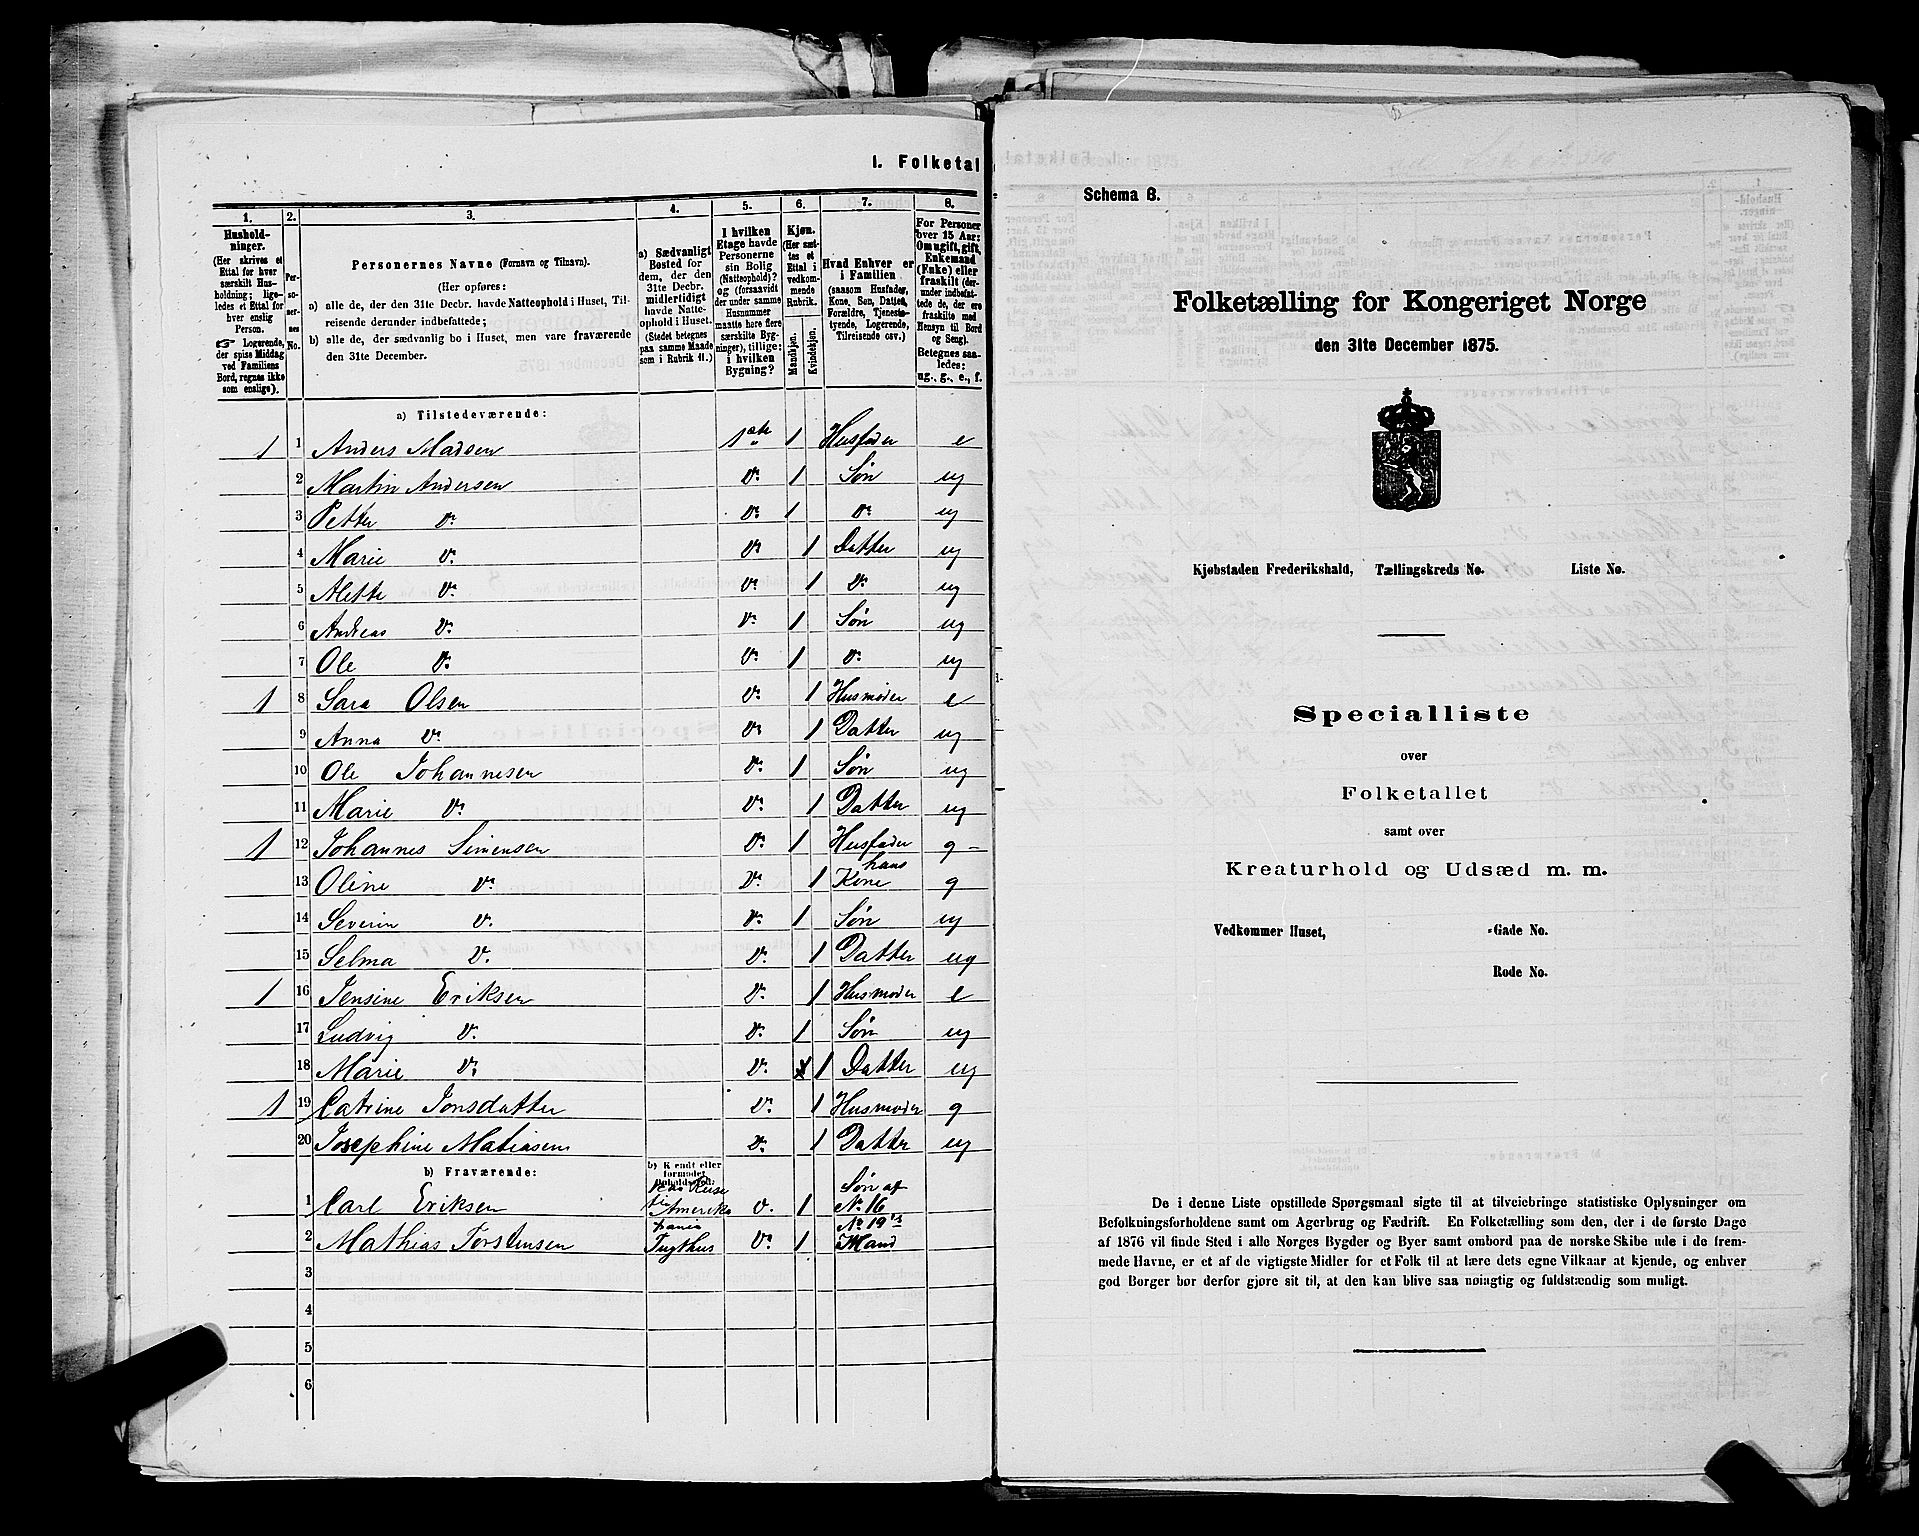 1. Folketal
1. 2. 3. 4. 5. 6. 7. 8.
Hushold-
ninger.
(Her skrives et
Ettal for hver
særskilt Hus-
holdning; lige-
ledes et Ettal for
hver enslig
Person.
☞ Logerende,
der spise Middag
ved Familiens
Bord, regnes ikke
som enslige).
Per-
so-
ner-
nes
No.
Personernes Navne (Fornavn og Tilnavn).
(Her opføres:
a) alle de, der den 31te Decbr. havde Natteophold i Huset, Til-
reisende derunder indbefattede;
b) alle de, der sædvanlig bo i Huset, men vare fraværende
den 31te December.
a) Sædvanligt
Bosted for
dem, der den
31te Decbr.
midlertidigt
havde Natte-
ophold i Huset.
(Stedet betegnes
paa samme Maade
som i Rubrik 11.)
I hvilken
Etage havde
Personerne
sin Bolig
(Natteophold)?
og (forsaavidt
der under samme
Husnummer
maatte høre flere
særskilte Byg-
ninger), tillige:
i hvilken
Bygning?
Kjøn.
(Her sæt-
tes et
Ettal i
vedkom-
mende
Rubrik.
Mandkjøn.
Kvindekjøn.
Hvad Enhver er
i Familien
(saasom Husfader,
Kone, Søn, Datter,
Forældre, Tjeneste-
tyende, Logerende,
Tilreisende osv.)
For Personer
over 15 Aar:
Om ugift, gift,
Enkemand
(Enke) eller
fraskilt (der-
under indbefat-
tede de, der ere
fraskilte med
Hensyn til Bord
og Seng).
Betegnes saa-
ledes:
ug., g., e., f.
a) Tilstedeværende:
1 1 Anders Madsen 1ste 1 Husfader e
2 Martin Andersen do 1 Søn ug
3 Petter do do 1 do ug
4 Marie do do 1 Datter ug
5 Alette do do 1 do ug
6 Andreas do do 1 Søn ug
7 Ole do do 1 do ug
1 8 Sara Olsen do 1 Husmoder e
9 Anna do do 1 Datter ug
10 Ole Johannesen do 1 Søn ug
11 Marie do do 1 Datter ug
1 12 Johannes Simensen do 1 Husfader g
13 Oline do do 1 hans Kone g
14 Severin do do 1 Søn ug
15 Selma do do 1 Datter ug
1 16 Jensine Eriksen do 1 Husmoder e
17 Ludvig do do 1 Søn ug
18 Marie do do 1 Datter ug
1 19 Catrine Jonsdatter do 1 Husmoder g
20 Josephine Matiasen do 1 Datter ug
b) Fraværende:
b) Kjendt eller
formodet
Opholdssted:
1 Carl Eriksen Reise til Amerika do 1 Søn af No 16
2 Mathias Torstensen Tugthus do 1 No 19's Mand
3
4
5
6
Schema B.
Folketælling for Kongeriget Norge
den 31te December 1875.
Kjøbstaden Frederikshald, Tællingskreds No. Liste No.
Specialliste
over
Folketallet
samt over
Kreaturhold og Udsæd m. m.
Vedkommer Huset, -Gade No.
Rode No.
De i denne Liste opstillede Spørgsmaal sigte til at tilveiebringe statistiske Oplysninger om
Befolkningsforholdene samt om Agerbrug og Fædrift. En Folketælling som den, der i de første Dage
af 1876 vil finde Sted i alle Norges Bygder og Byer samt ombord paa de norske Skibe ude i de frem-
mede Havne, er et af de vigtigste Midler for et Folk til at lære dets egne Vilkaar at kjende, og enhver
god Borger bør derfor gjøre sit til, at den kan blive saa nøiagtig og fuldstændig som muligt.